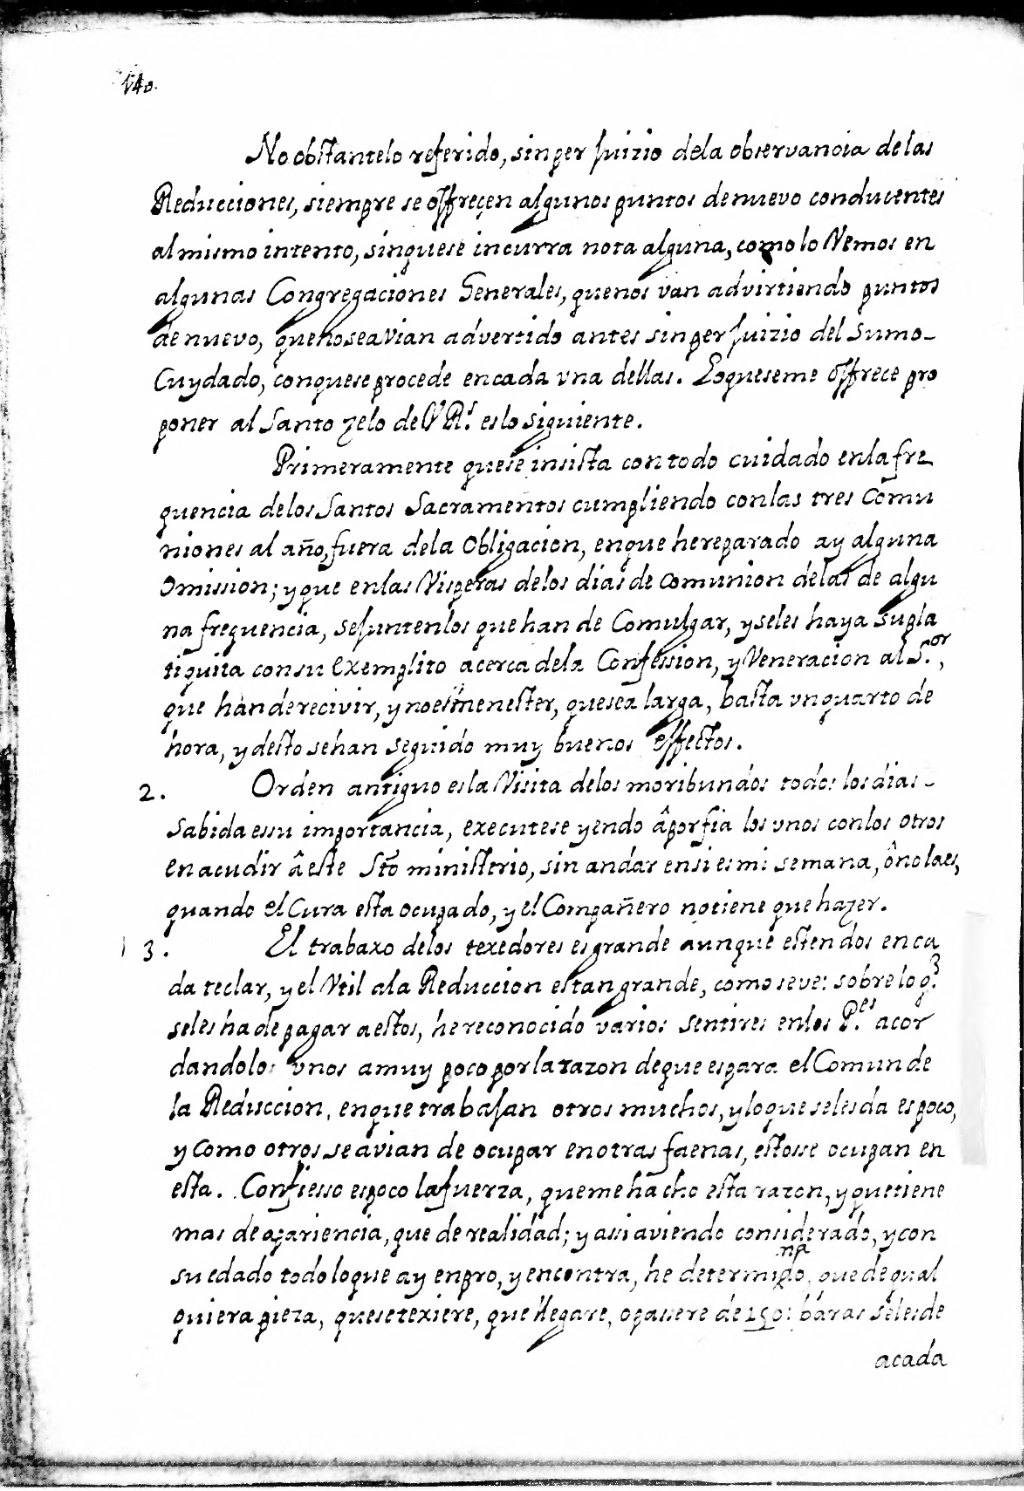 140.
No obstantelo referido, sin per juizio dela observancia de las
Reducciones, siempre se offreçen algunos puntos de nuevo conducentes
al mismo intento, sinquese incurra nota alguna, como lo Vemos en
algunas Congregaciones Generales, quenos van advirtiendo puntos
de nuevo, quenoseavian advertido antes sin per juizio del Sumo
Cuydado, conquese procede en cada vna dellas. Loqueseme offrece pro
poner al Santo zelo de V Rˢ. es lo siguiente.
Primeramente quese insista con todo cuidado enla fre
quencia delos Santos Sacramentos cumpliendo conlas tres Comu
niones al año, fuera dela Obligacion, enque he reparado ay alguna
Omission; y que enlas Visperas delos dias de comunion delas de algu
na frequencia, se juntenlos que han de Comulgar, y seles haya su pla
tiquita con su Exemplito acerca dela Confession, y Veneracion al S.ᵒʳ,
que han de recivir, y noes menester, quesea larga, basta vn quarto de
hora, y desto sehan seguido muy buenos effectos.
2. Orden antiguo es la Visita delos moribundos todos los dias
Sabida es su importancia, executese yendo â porfia los vnos con los otros
en acudir â este Sto ministerio, sin andar en si es mi semana, ô no la es,
quando el Cura esta ocupado, y el Compañero no tiene que hazer.
3. El trabaxo delos texedores es grande aunque esten dos en ca
da teclar, y el Vtil ala Reduccion es tan grande, como seve: sobre lo q.ᵉ
seles ha de pagar a estos, he reconocido varios sentires enlos P.ᵉˢ acor
dandolos vnos a muy poco por la razon de que es para el Comun de
la Reduccion, en que trabajan otros muchos, y lo que seles da es poco,
y como otros se avian de ocupar en otras faenas, estos se ocupan en
esta. Confiesso es poco la fuerza, que me ha cho esta razon, y que tiene
mas de apariencia, que de realidad; y assi aviendo considerado, y con
su edado todo lo que ay en pro, y en contra, he determido, que de qual
na
quiera pieza, que se texiere, que llegare, o passere de 150: baras seles de
acada